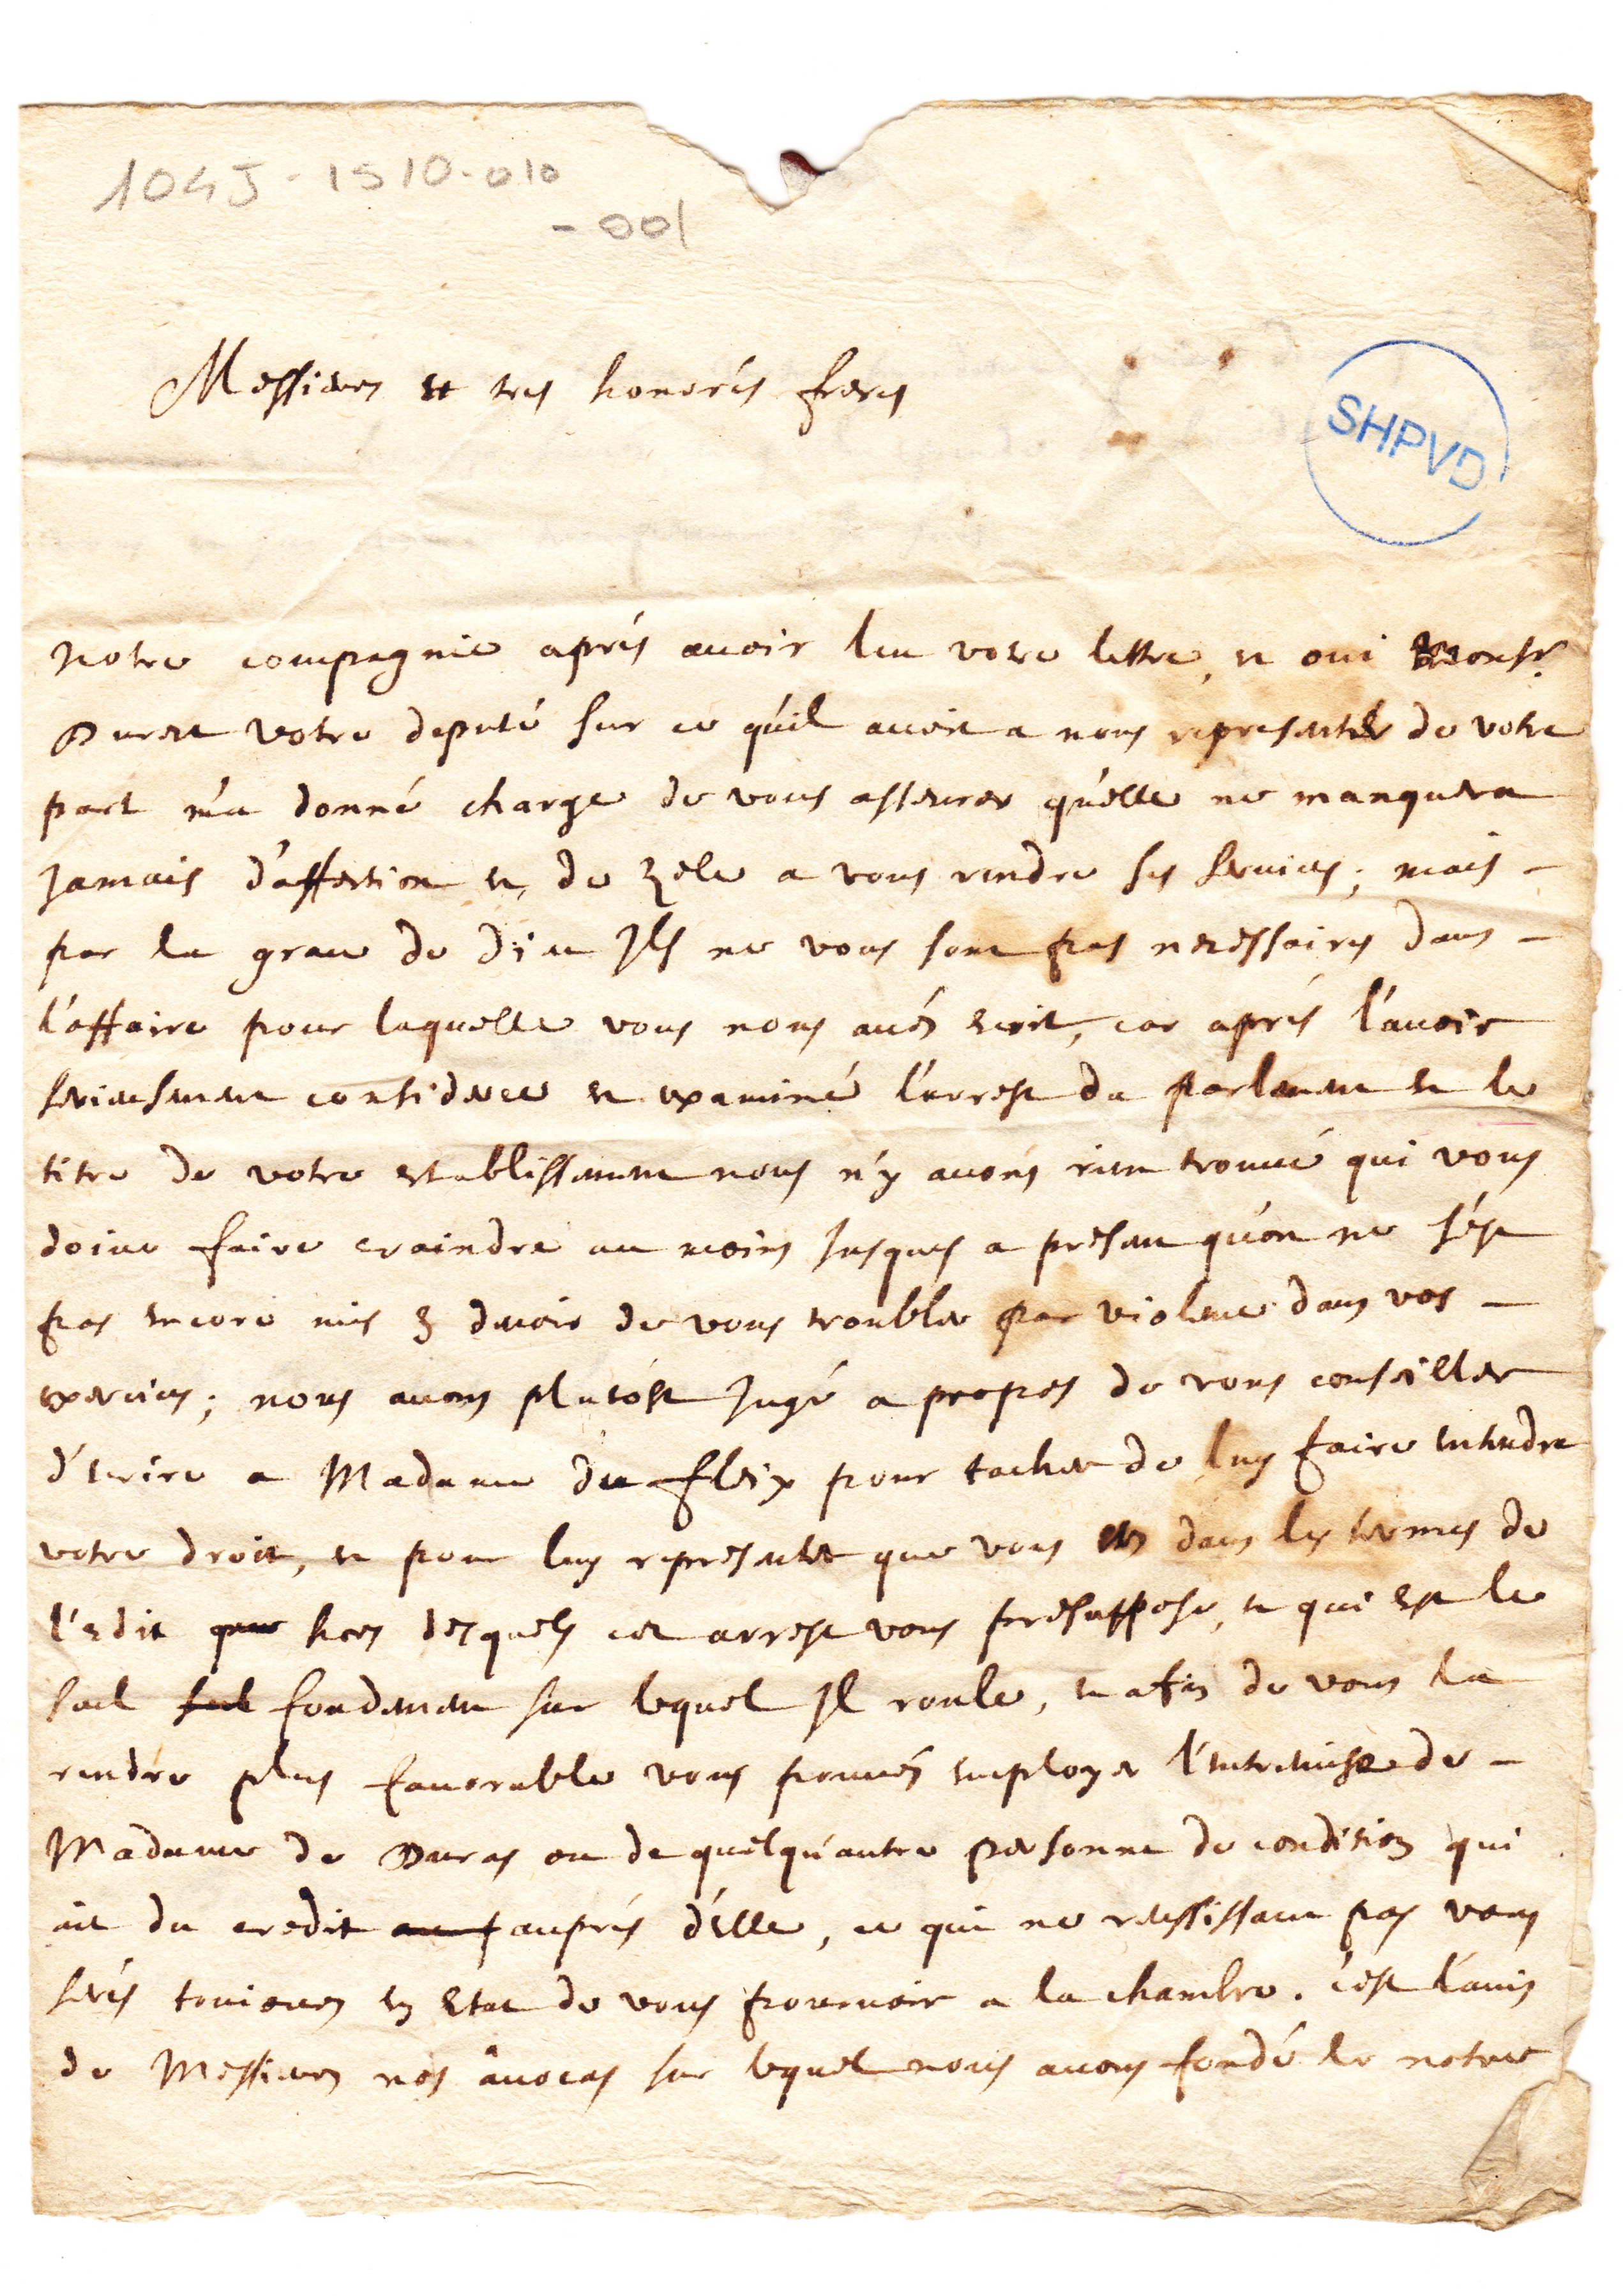 104J-1510-010
-001
SHPVD
Messieurs et tres honorés freres
Notre compagnie aprés auoir leu votre lettre, et oui Monsr.
Duret votre deputé sur ce qu'il auoit a nous representer de votre
part m'a donné charge de vous asseurer qu'elle ne manquera
Jamais d'affection et de zele a vous rendre ses seruices; mais -
par la grace de dieu Ils ne vous sont pas necessaires dans -
l'affaire pour laquelle vous nous aués ecrit, car aprés l'auoir
serieusement consideree et examiné l'arrest du parlement et le
titre de votre etablissement nous n'y auons rien trouué qui vous
doiue faire craindre au moins Jusques a present qu'on ne s'est
pas encore mis en deuoir de vous troubler par violence dans vos -
exercices; nous auons plutost Jugé a propos de vous conseiller
d'ecrire a Madame du fleix pour tacher de luy faire entendre
votre droit, et pour luy representer que vous etes dans les termes de
l'edit hors desquels cet arrest vous presuppose, et qui est le
seul fondement sur lequel Il roule, et afin de vous la
rendre plus fauorable vous pouués employer l'entremise de -
Madame de Duras ou de quelqu'autre personne de condition qui
ait du credit auprés d'elle, ce qui ne reussissant pas vous
serés touiours en etat de vous pouruoir a la chambre. c'est l'auis
de Messieurs nos auocas sur lequel nous auons fondé le notre